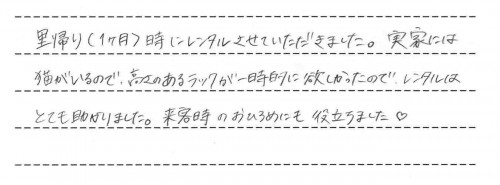 里帰り(1ヶ月)時にレンタルさせていただきました。実家には
猫がいるので、高さのあるラックが一時的に欲しかったので、レンタルは
とても助かりました。来客時のおひろめにも役立ちました♡